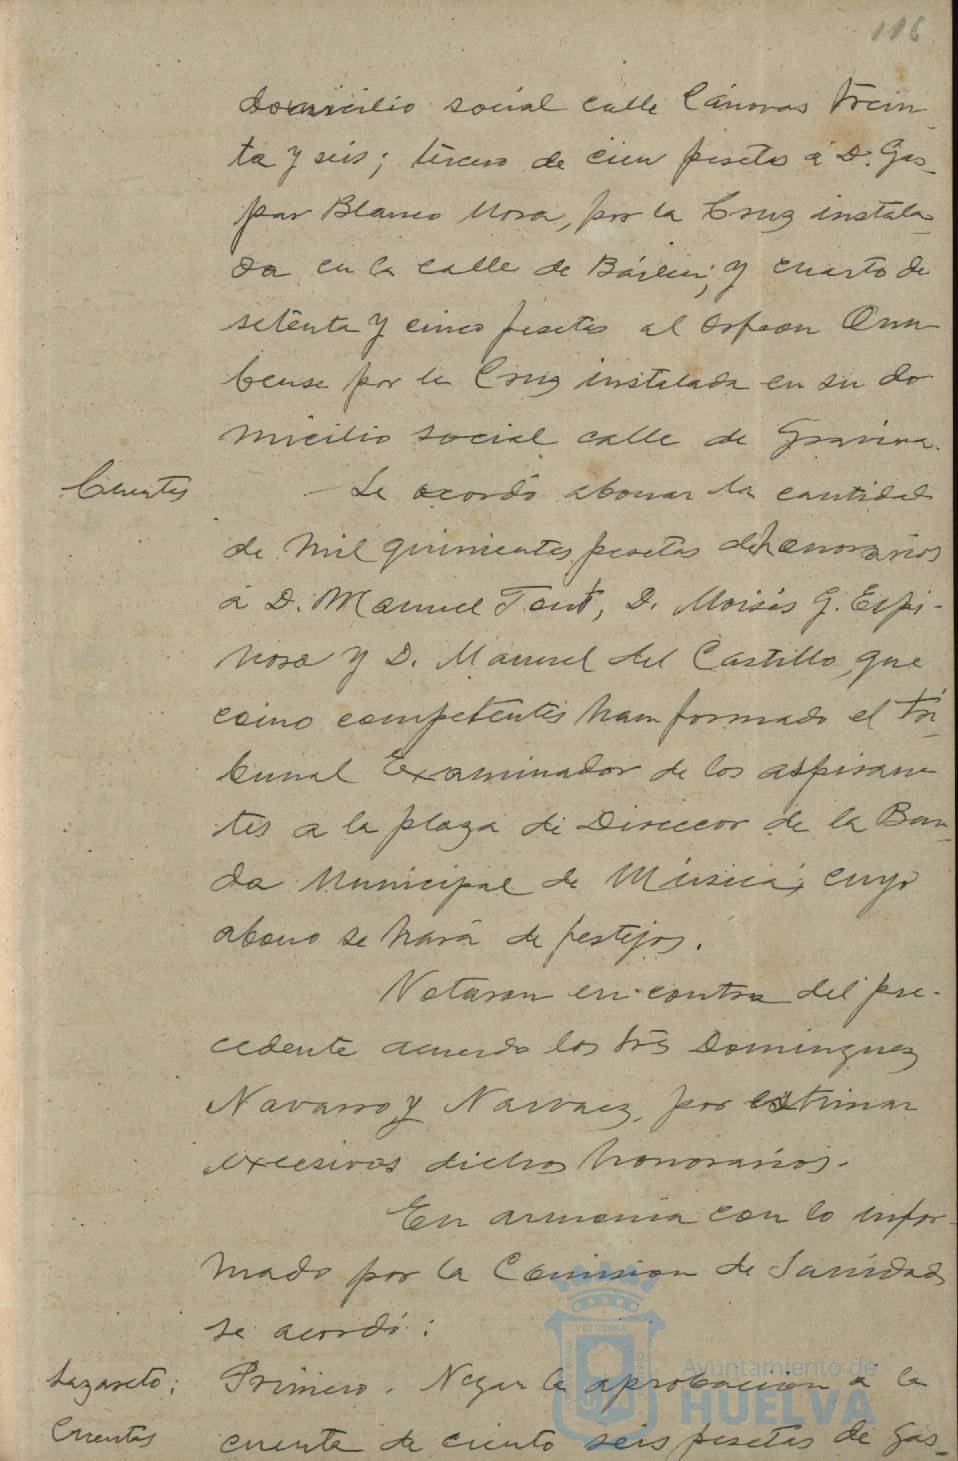 116
domicilio social calle Cánovas trein-
ta y seis; tercero de cien pesetas á D. Gas-
par Blanco Mora, por la Cruz instala-
da en la calle de Bárcia; y cuarto de
setenta y cinco pesetas al Orfeon Onu-
bense por la Cruz instalada en su do
micilio social calle de Gravina.
Cuentas
Se acordó abonar la cantidad
de mil quinientas pesetas de honorarios
á D. Manuel Font, D. Moisés G. Espi-
nosa y D. Manuel del Castillo, que
como competentes han formado el tri-
bunal Examinador de los aspiran-
tes a la plaza de Director de la Ban-
da Municipal de Música, cuyo
abono se hará de festejos.
Votaron en contra del pre-
cedente acuerdo los Sres Dominguez
Navarro y Narvaez, por estimar
excesivos dichos honorarios.
En armonía con lo infor-
mado por la Comision de Sanidad
se acordó:
Lazareto: Primero. Negar la aprobacion á la
Cuentas cuenta de ciento seis pesetas de gas-
Ayuntamiento de
HUELVA